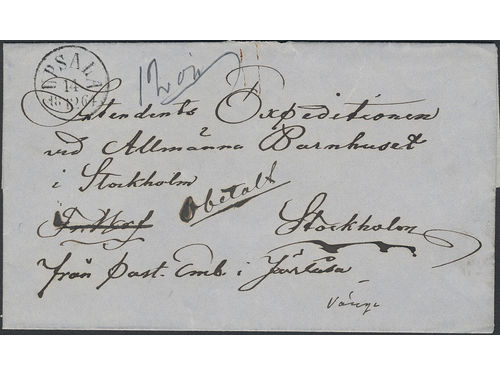 UPSALA
14
1864
12 öre
Intendents Expeditionen
vid Allmänna Barnhuset
i Stockholm
Obetalt
Stockholm
från Past. Emb. i Järlåsa
Vänge